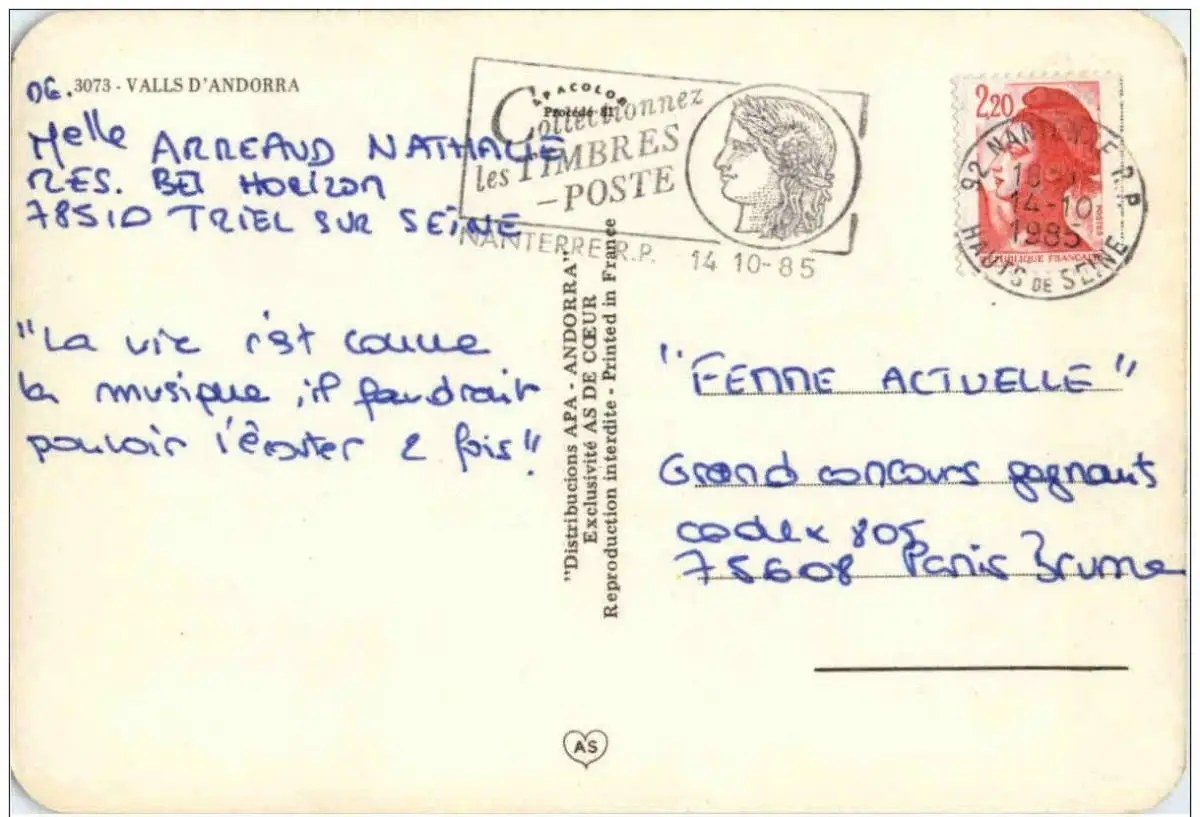 DE. 3073 - VALLS D'ANDORRA
Melle ARREAUD NATHALIE
RES. BEL HORIZON
78510 TRIEL SUR SEINE
"La vie c'est comme
la musique, il faudrait
pouvoir l'écouter 2 fois".
APACOLOR
Procédé 81
Collectionnez
les TIMBRES
-POSTE
NANTERRE R.P. 14 10-85
"Distribucions APA - ANDORRA"
Exclusivité AS DE CŒUR
Reproduction interdite - Printed in France
2,20
REPUBLIQUE FRANCAISE
92 NANTERRE R.P
14-10
1985
HAUTS DE SEINE
"FEMME ACTUELLE"
Grand concours gagnants
codex 805
75608 Paris Brune
AS